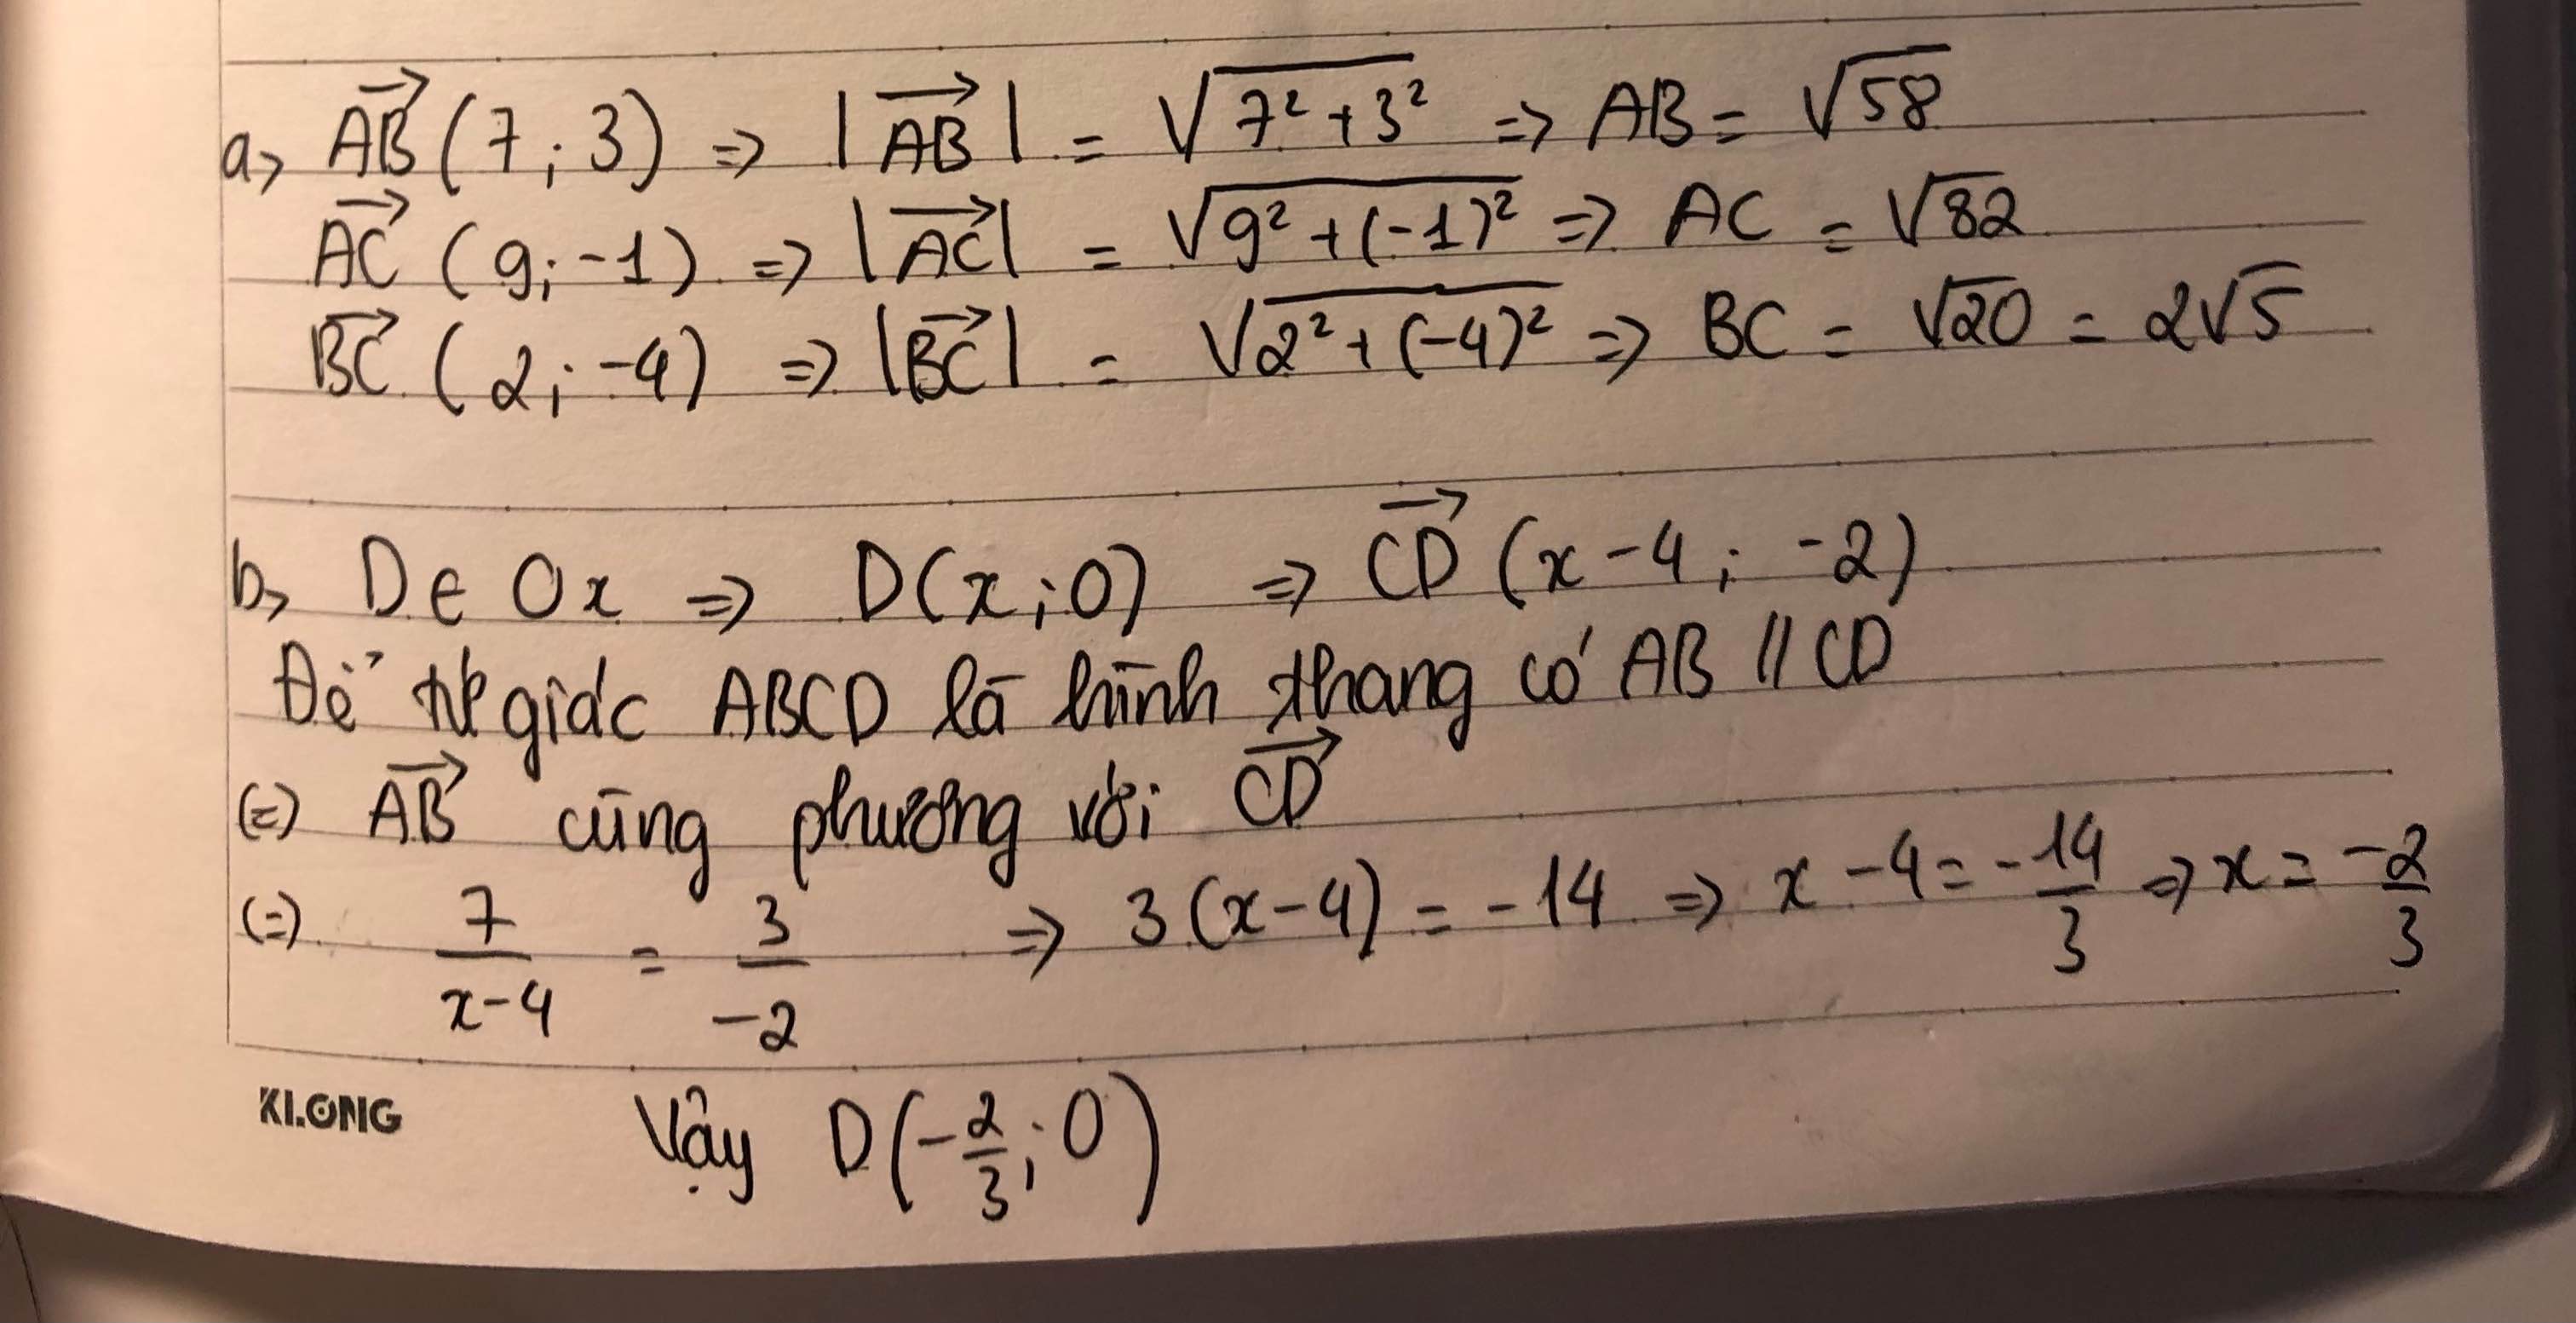 a, AB→ (7 ; 3) => |AB→| = √(7² + 3²) => AB = √58
AC→ (9 ; -1) => |AC→| = √(9² + (-1)²) => AC = √82
BC→ (2 ; -4) => |BC→| = √(2² + (-4)²) => BC = √20 = 2√5
b, D ∈ Ox => D(x ; 0) => CD→ (x - 4 ; -2)
Để tứ giác ABCD là hình thang có AB // CD
(=) AB→ cùng phương với CD→
(=) 7/(x-4) = 3/-2 => 3(x-4) = -14 => x - 4 = -14/3 => x = -2/3
Vậy D(-2/3 ; 0)
KLONG